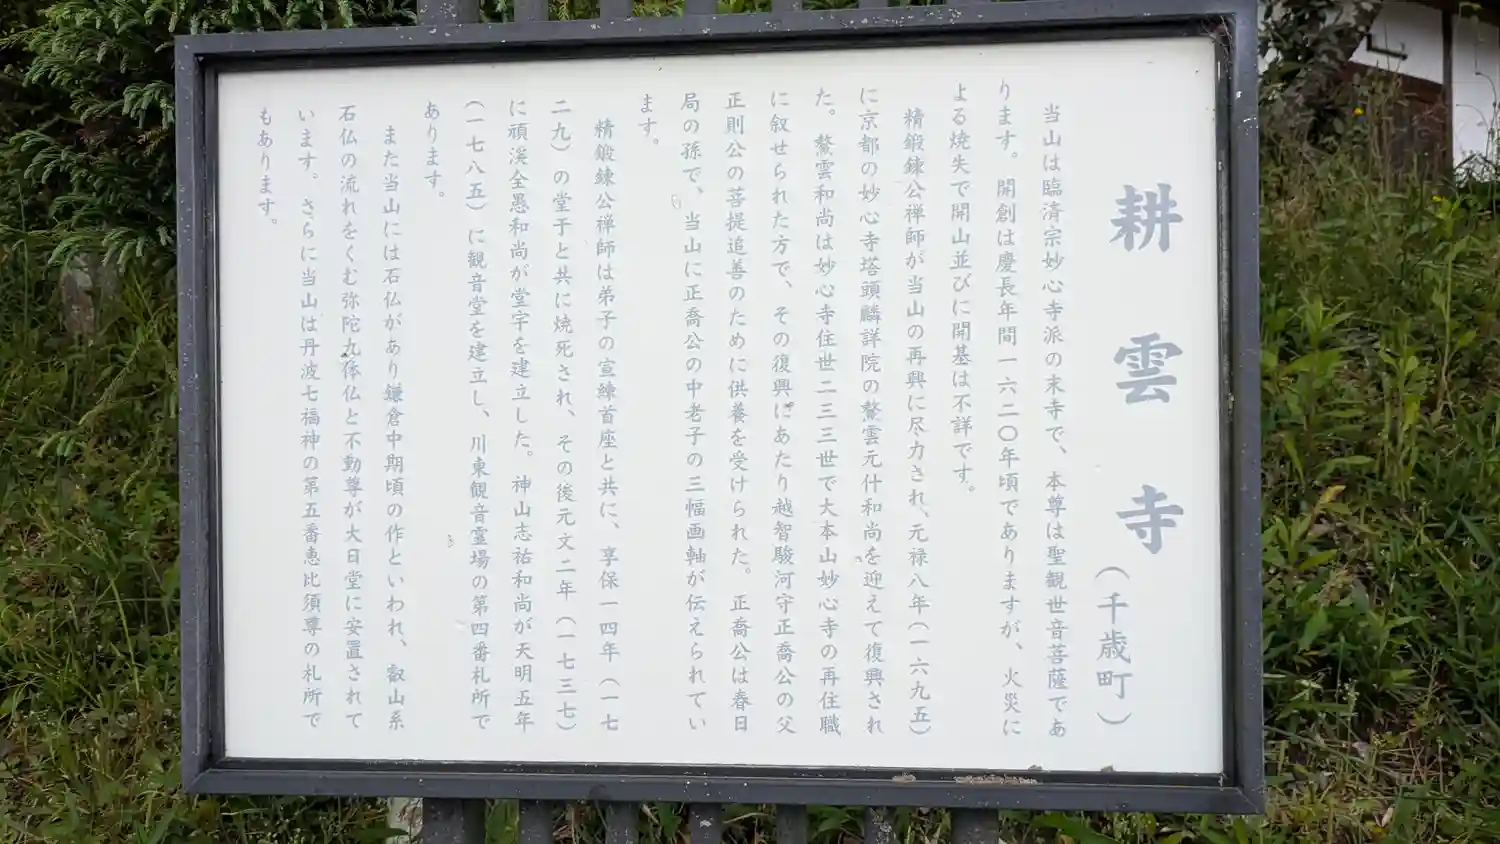 耕雲寺（千歳町）
当山は臨済宗妙心寺派の末寺で、本尊は聖観世音菩薩であ
ります。開創は慶長年間一六二〇年頃でありますが、火災に
よる焼失で開山並びに開基は不詳です。
精鍛錬公禅師が当山の再興に尽力され、元禄八年（一六九五）
に京都の妙心寺塔頭麟詳院の鰲雲元什和尚を迎えて復興され
た。鰲雲和尚は妙心寺住世二三三世で大本山妙心寺の再住職
に叙せられた方で、その復興にあたり越智駿河守正喬公の父
正則公の菩提追善のために供養を受けられた。正喬公は春日
局の孫で、当山に正喬公の中老子の三幅画軸が伝えられてい
ます。
精鍛錬公禅師は弟子の宣練首座と共に、享保一四年（一七
二九）の堂干と共に焼死され、その後元文二年（一七三七）
に頑渓全愚和尚が堂宇を建立した。神山志祐和尚が天明五年
（一七八五）に観音堂を建立し、川東観音霊場の第四番札所で
あります。
また当山には石仏があり鎌倉中期頃の作といわれ、叡山系
石仏の流れをくむ弥陀九係仏と不動尊が大日堂に安置されて
います。さらに当山は丹波七福神の第五番恵比須尊の札所で
もあります。